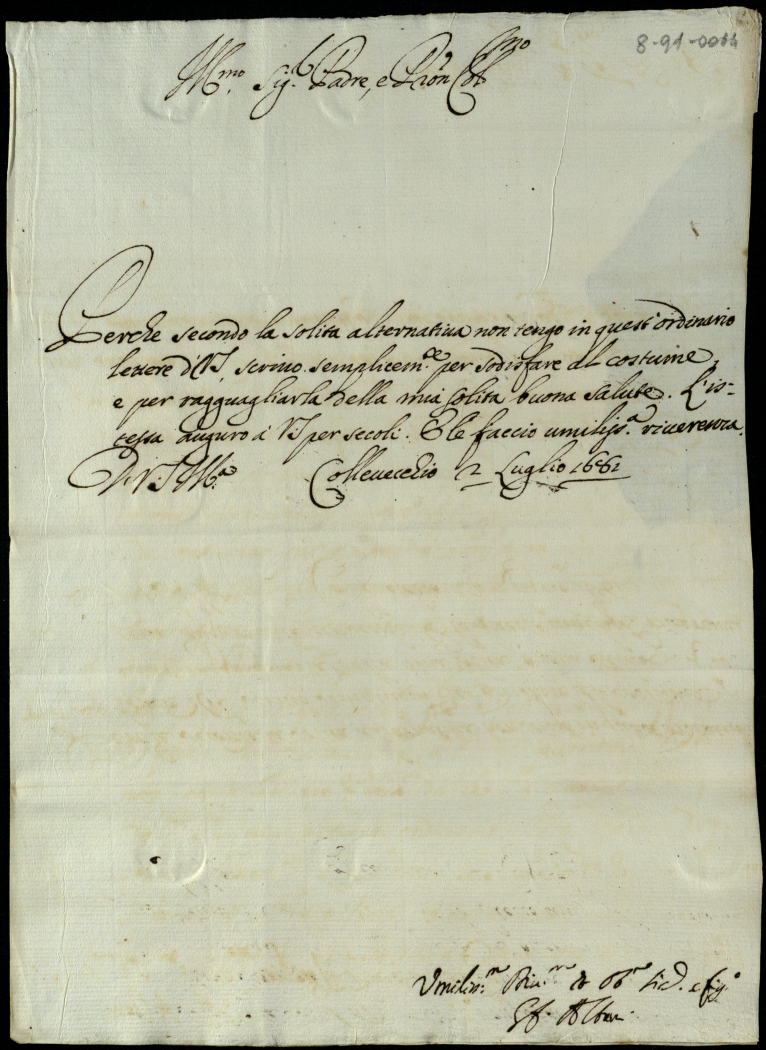 8-91-0014
Ill.mo Sig.r Padre, e Pron Col.mo
Perche secondo la solita alternatiua non tengo in quest'ordinario
lettere di V.S. scriuo semplicem.te per sodisfare al costume,
e per ragguagliarla della mia solita buona salute. L'is-
tessa auguro à V.S. per secoli. E le faccio umiliss.a riuerenza.
Di V.S. Ill.ma Colleuecchio 2 Luglio 1661
Vmiliss.mo &